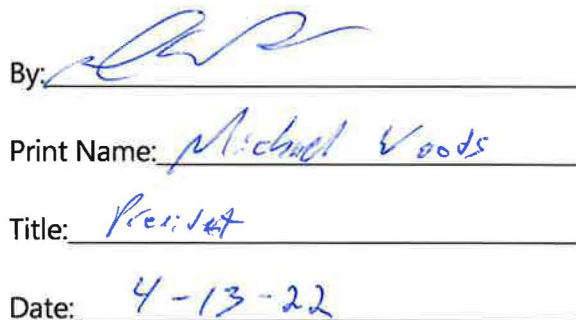 By:
Print Name: Michael Woods
Title: President
Date: 4-13-22